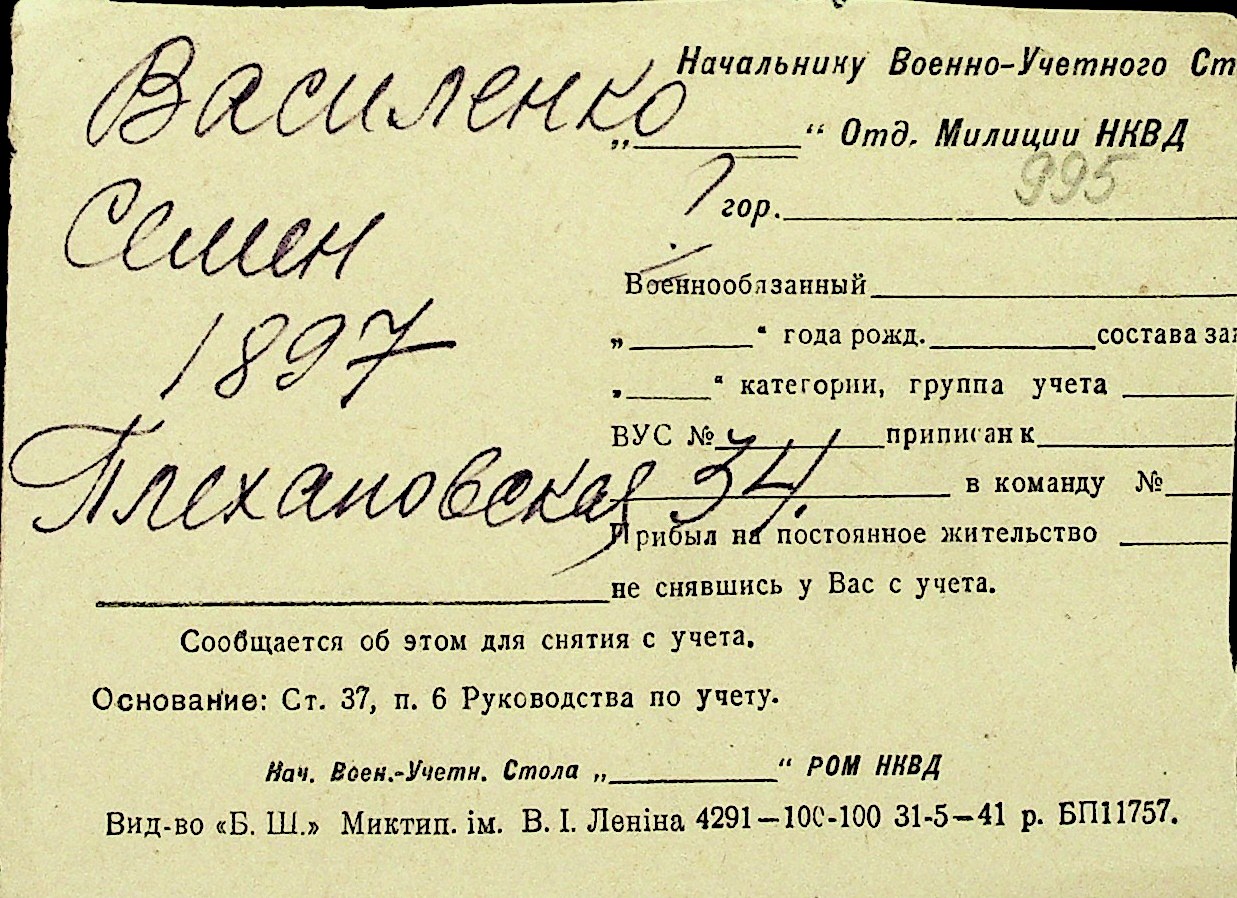 Василенко
Семен
1897
Плехановская 34.
Начальнику Военно-Учетного Ст
„__________“ Отд. Милиции НКВД
995
гор.
Военнообязанный
„________“ года рожд.__________состава за
„_____“ категории, группа учета
ВУС №__________приписан к
в команду №
Прибыл на постоянное жительство
не снявшись у Вас с учета.
Сообщается об этом для снятия с учета.
Основание: Ст. 37, п. 6 Руководства по учету.
Нач. Воен.-Учетн. Стола „__________“ РОМ НКВД
Вид-во «Б. Ш.» Миктип. ім. В. І. Леніна 4291—100-100 31-5—41 р. БП11757.